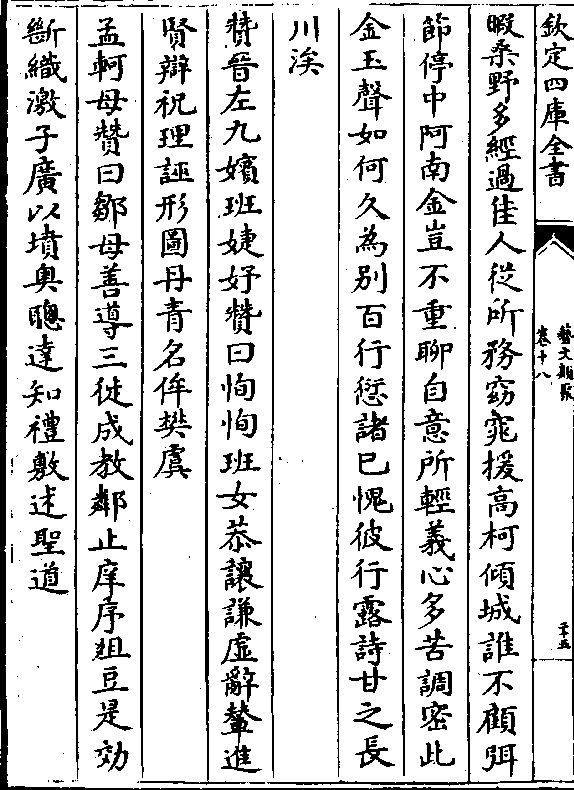 欽定四庫全書
藝文類聚
卷十八
二十五
暇桑野多經過佳人從所務窈窕援高柯傾城誰不顧弭
節停中阿南金豈不重聊自意所輕義心多苦調密此
金玉聲如何久為别百行愆諸已愧彼行露詩甘之長
川涘
贊晉左九嬪班婕妤贊曰恂恂班女恭讓謙虛辭輦進
賢辯祝理誣形圖丹青名侔樊虞
孟軻母贊曰鄒母善導三徙成教鄰止庠序俎豆是効
斷織激子廣以墳奥聰達知禮敷述聖道